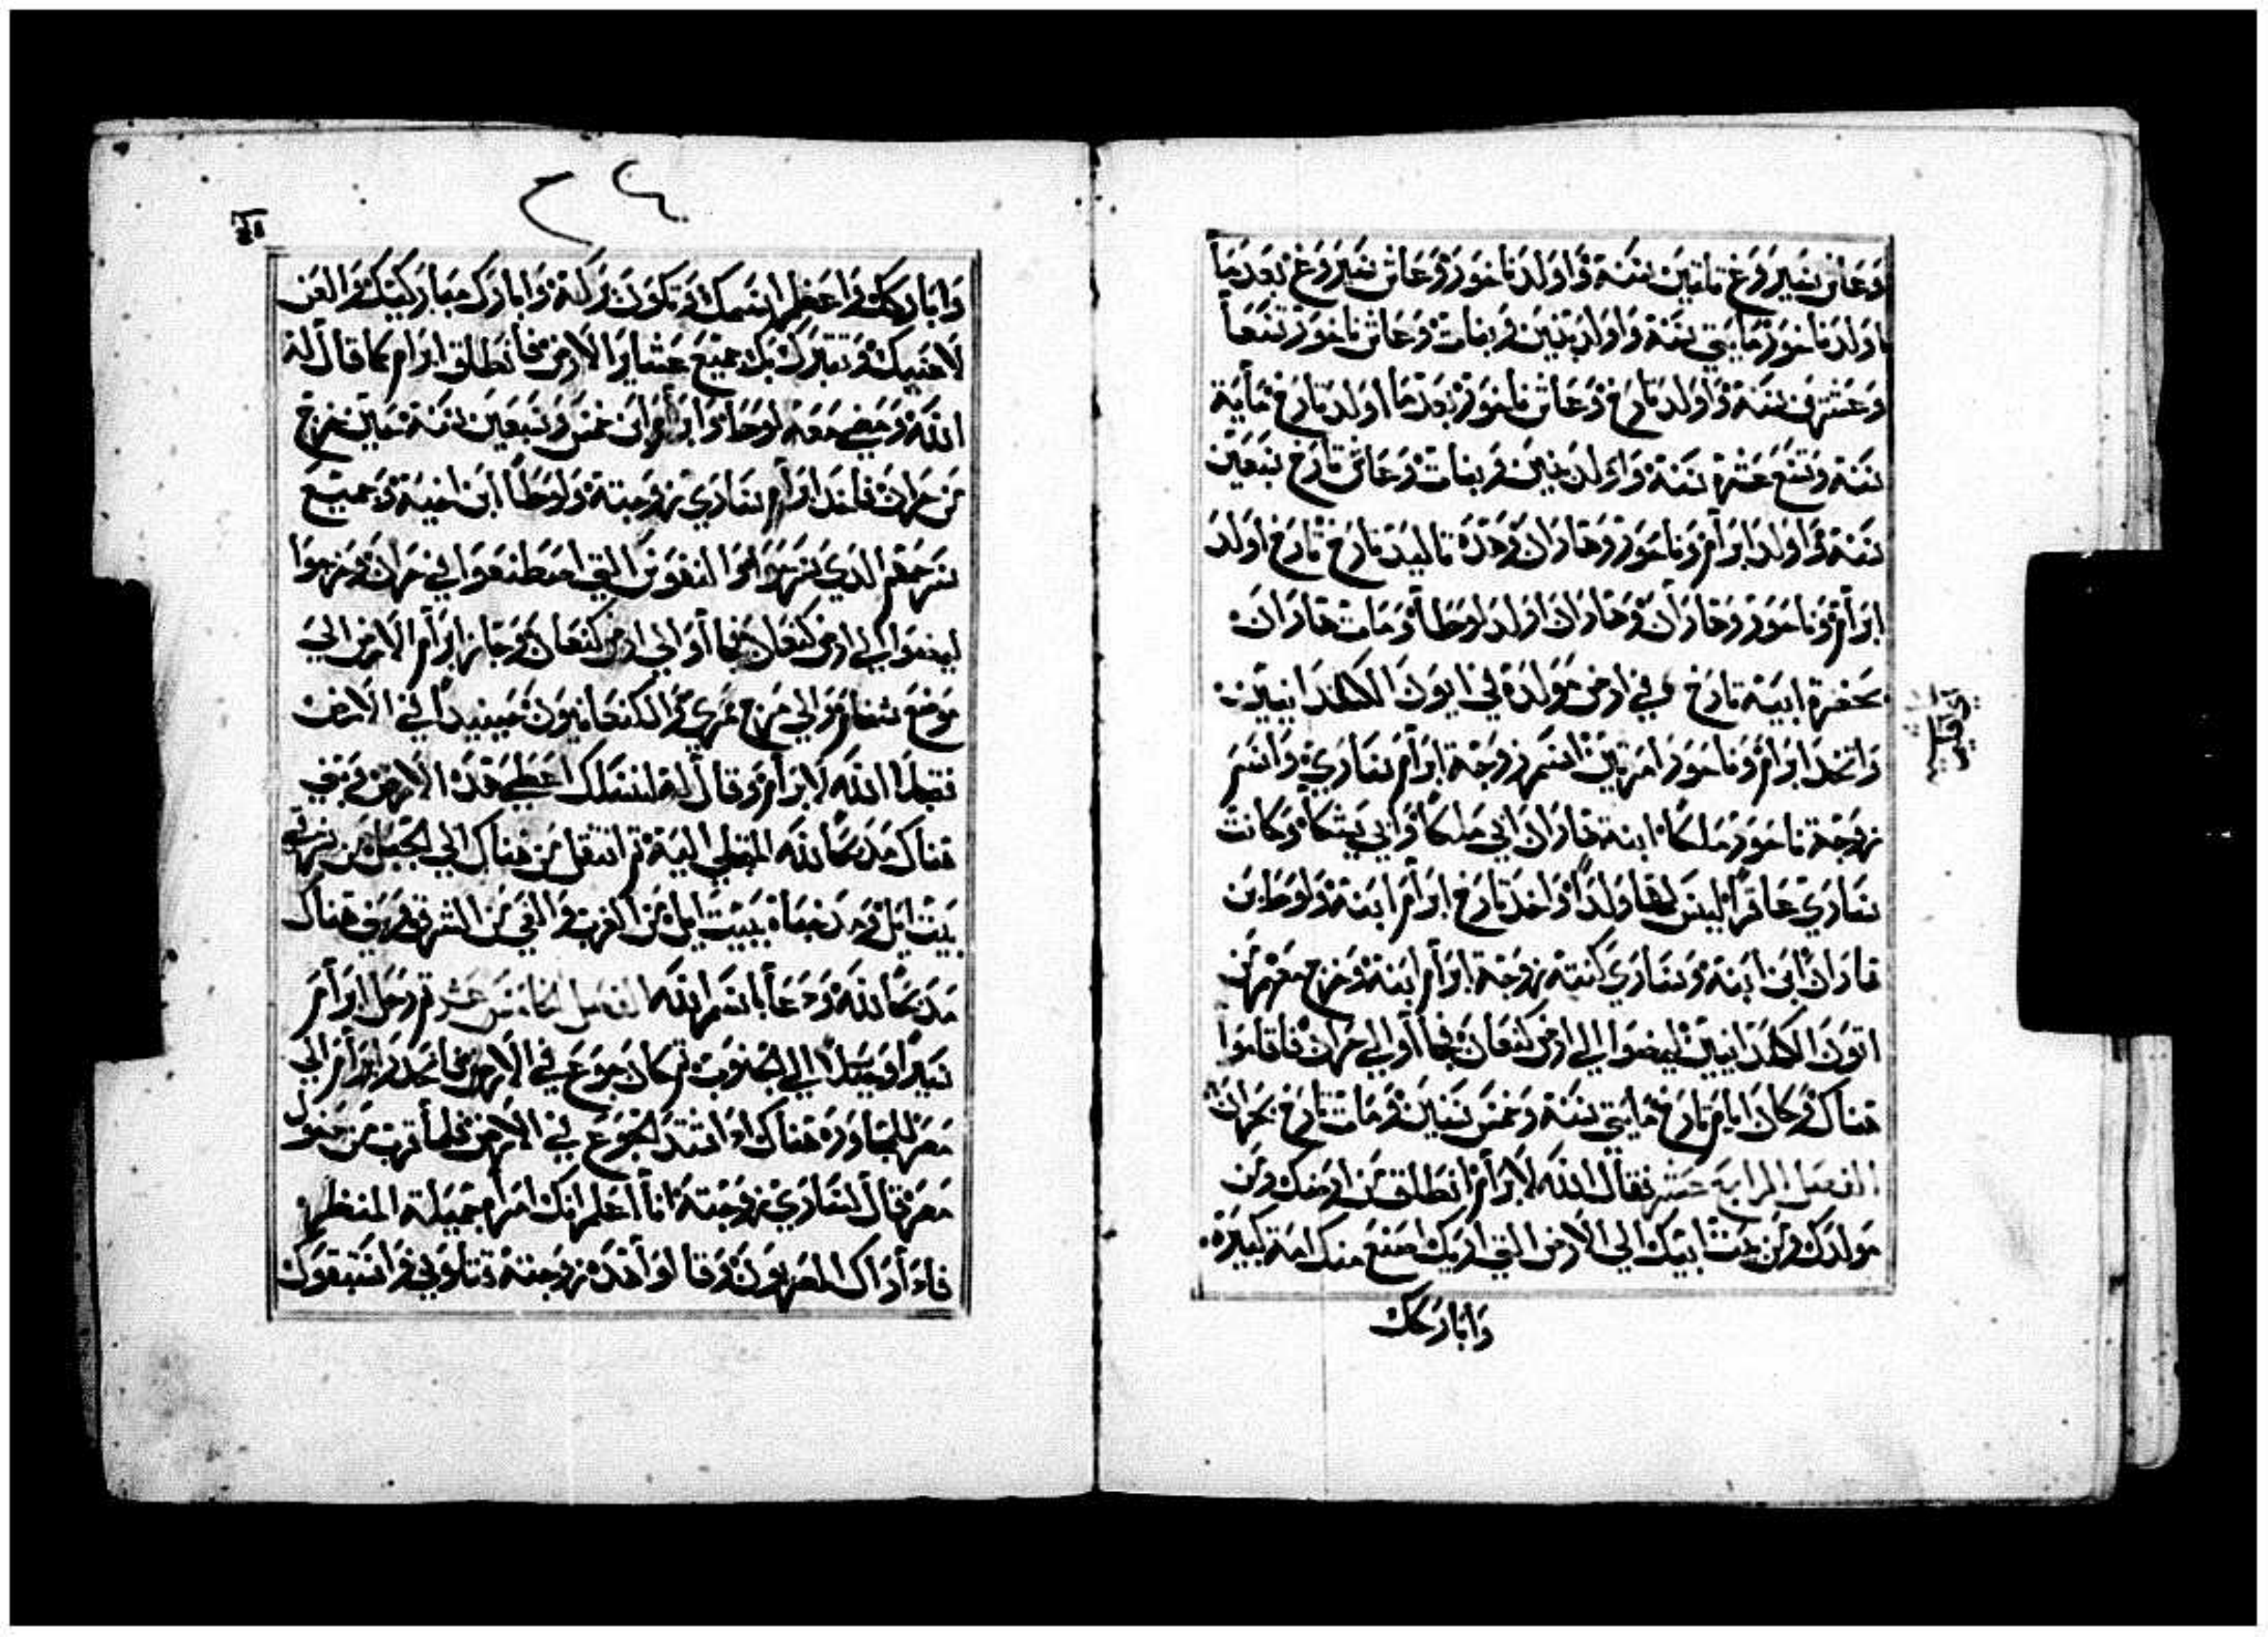 وَعاش سَيروغ ثلثين سَنة وَاولد ناحور وَعاش سَيروغ بعد ما
اولد ناحور مايتي سَنة وَاولد بنين وَبنات وَعاش ناحور تسَعاً
وَعشرين سَنة وَاولد تارخ وَعاش ناحور بعد ما اولد تارخ مَاية
سَنة وَتسَع عَشرة سَنة وَاولد بنين وَبنات وَعاش تارخ سَبعَين
سَنة وَاولد ابرَام وَناحوَر وَهَاران وَهَذه تَاليد تارخ تارخ اولد
ابرَام وَناحوَر وَهَارَان وَهَاران اولد لوطاً وَمَات هَارَان
بحضرة ابيَه تارخ في ارض مَولده في ايوَن الكلدَانيين
وَاتخذ ابرَام وَناحوَر امرَتين اسَم زوجَة ابرَام سَارَي وَاسَم
زوجَة ناحوَر مَلكا ابنة هاران ابي مَلكا وَابي يَسَكا وَكانت
سَارَي عَاقراً ليسَ لهَا وَلداً وَاخذ تارَخ ابرَام ابنهَ وَلوط بن
هاران ابن ابنه وَسَارَي كنته زوجَة ابرَام ابنه وَخرج معهم من
اتون الكلدَانيين ليمضوا الي ارض كنعَان فجاأوا الي حرَان فاقاموا
هناك وَكان ايام تارخ مَايتي سَنة وَخمسَ سَنين وَمَات تارخ بحرَان
الفصل الرابع عَشر فقال الله لابرَام انطلق مَن ارضك وَمن
مَولدَك وَمن بيَت ابيَك الي الارض التي اريَك اصنع منك امة كبيرَة
وَاباركك
وَاباركك وَاعَظم اسَمك وَتكوَن برَكة وَابارك مبَاركيَك وَالعَن
لاعنيك وَتتبَرك بَك جميَع عَشاير الارض فانطلق ابرَام كما قال له
الله وَمضي مَعَه لوط وَابرَام ابن خمسَ وَسَبعَين سَنة حين خرج
من حرَان فاخذ ابرَام سَارَي زوجتَه وَلوطاً ابن اخيَه وَجميَع
سَرحهَم الذي سَرحوا وَالنفوسَ التي اصطنعوا في حرَان وَخرجوا
ليمضوا الي ارض كنعَان فجاأوا الي ارض كنعَان وَجاز ابرَام الارض الي
موضع شخام وَالي مرج ممري وَالكنعَانيون حينيذاً في الارض
فتجلا الله لابرَام وَقال له لنسَلك اعطي هَذه الارض فبني
هناك مذبحاً لله المتجلي اليَه ثم انتقل مَن هناك الي الجَبل من شرقي
بيَت ايل وَمد خباه ببيَت ايل من الغرب وَالغي من الشرق وَبني هناك
مذبحاً لله وَدعَا باسَم الله الفصل الخامس عشر ثم رحل ابرَام
سَيراً وَمبَتداً الي الجنوب ثم كان جوَع في الارض فانحدر ابرَام الي
مصر ليجَاور هناك اذ اشتد الجَوع في الارض فلما قرب من دخول
مصر قال لسَارَي زوجتَه انا اعلم انك امرَاة جميَلة المنظر
فاذا رَاك المصريون وَقالوا هَذه زوجته قتلوني وَاستبقوك